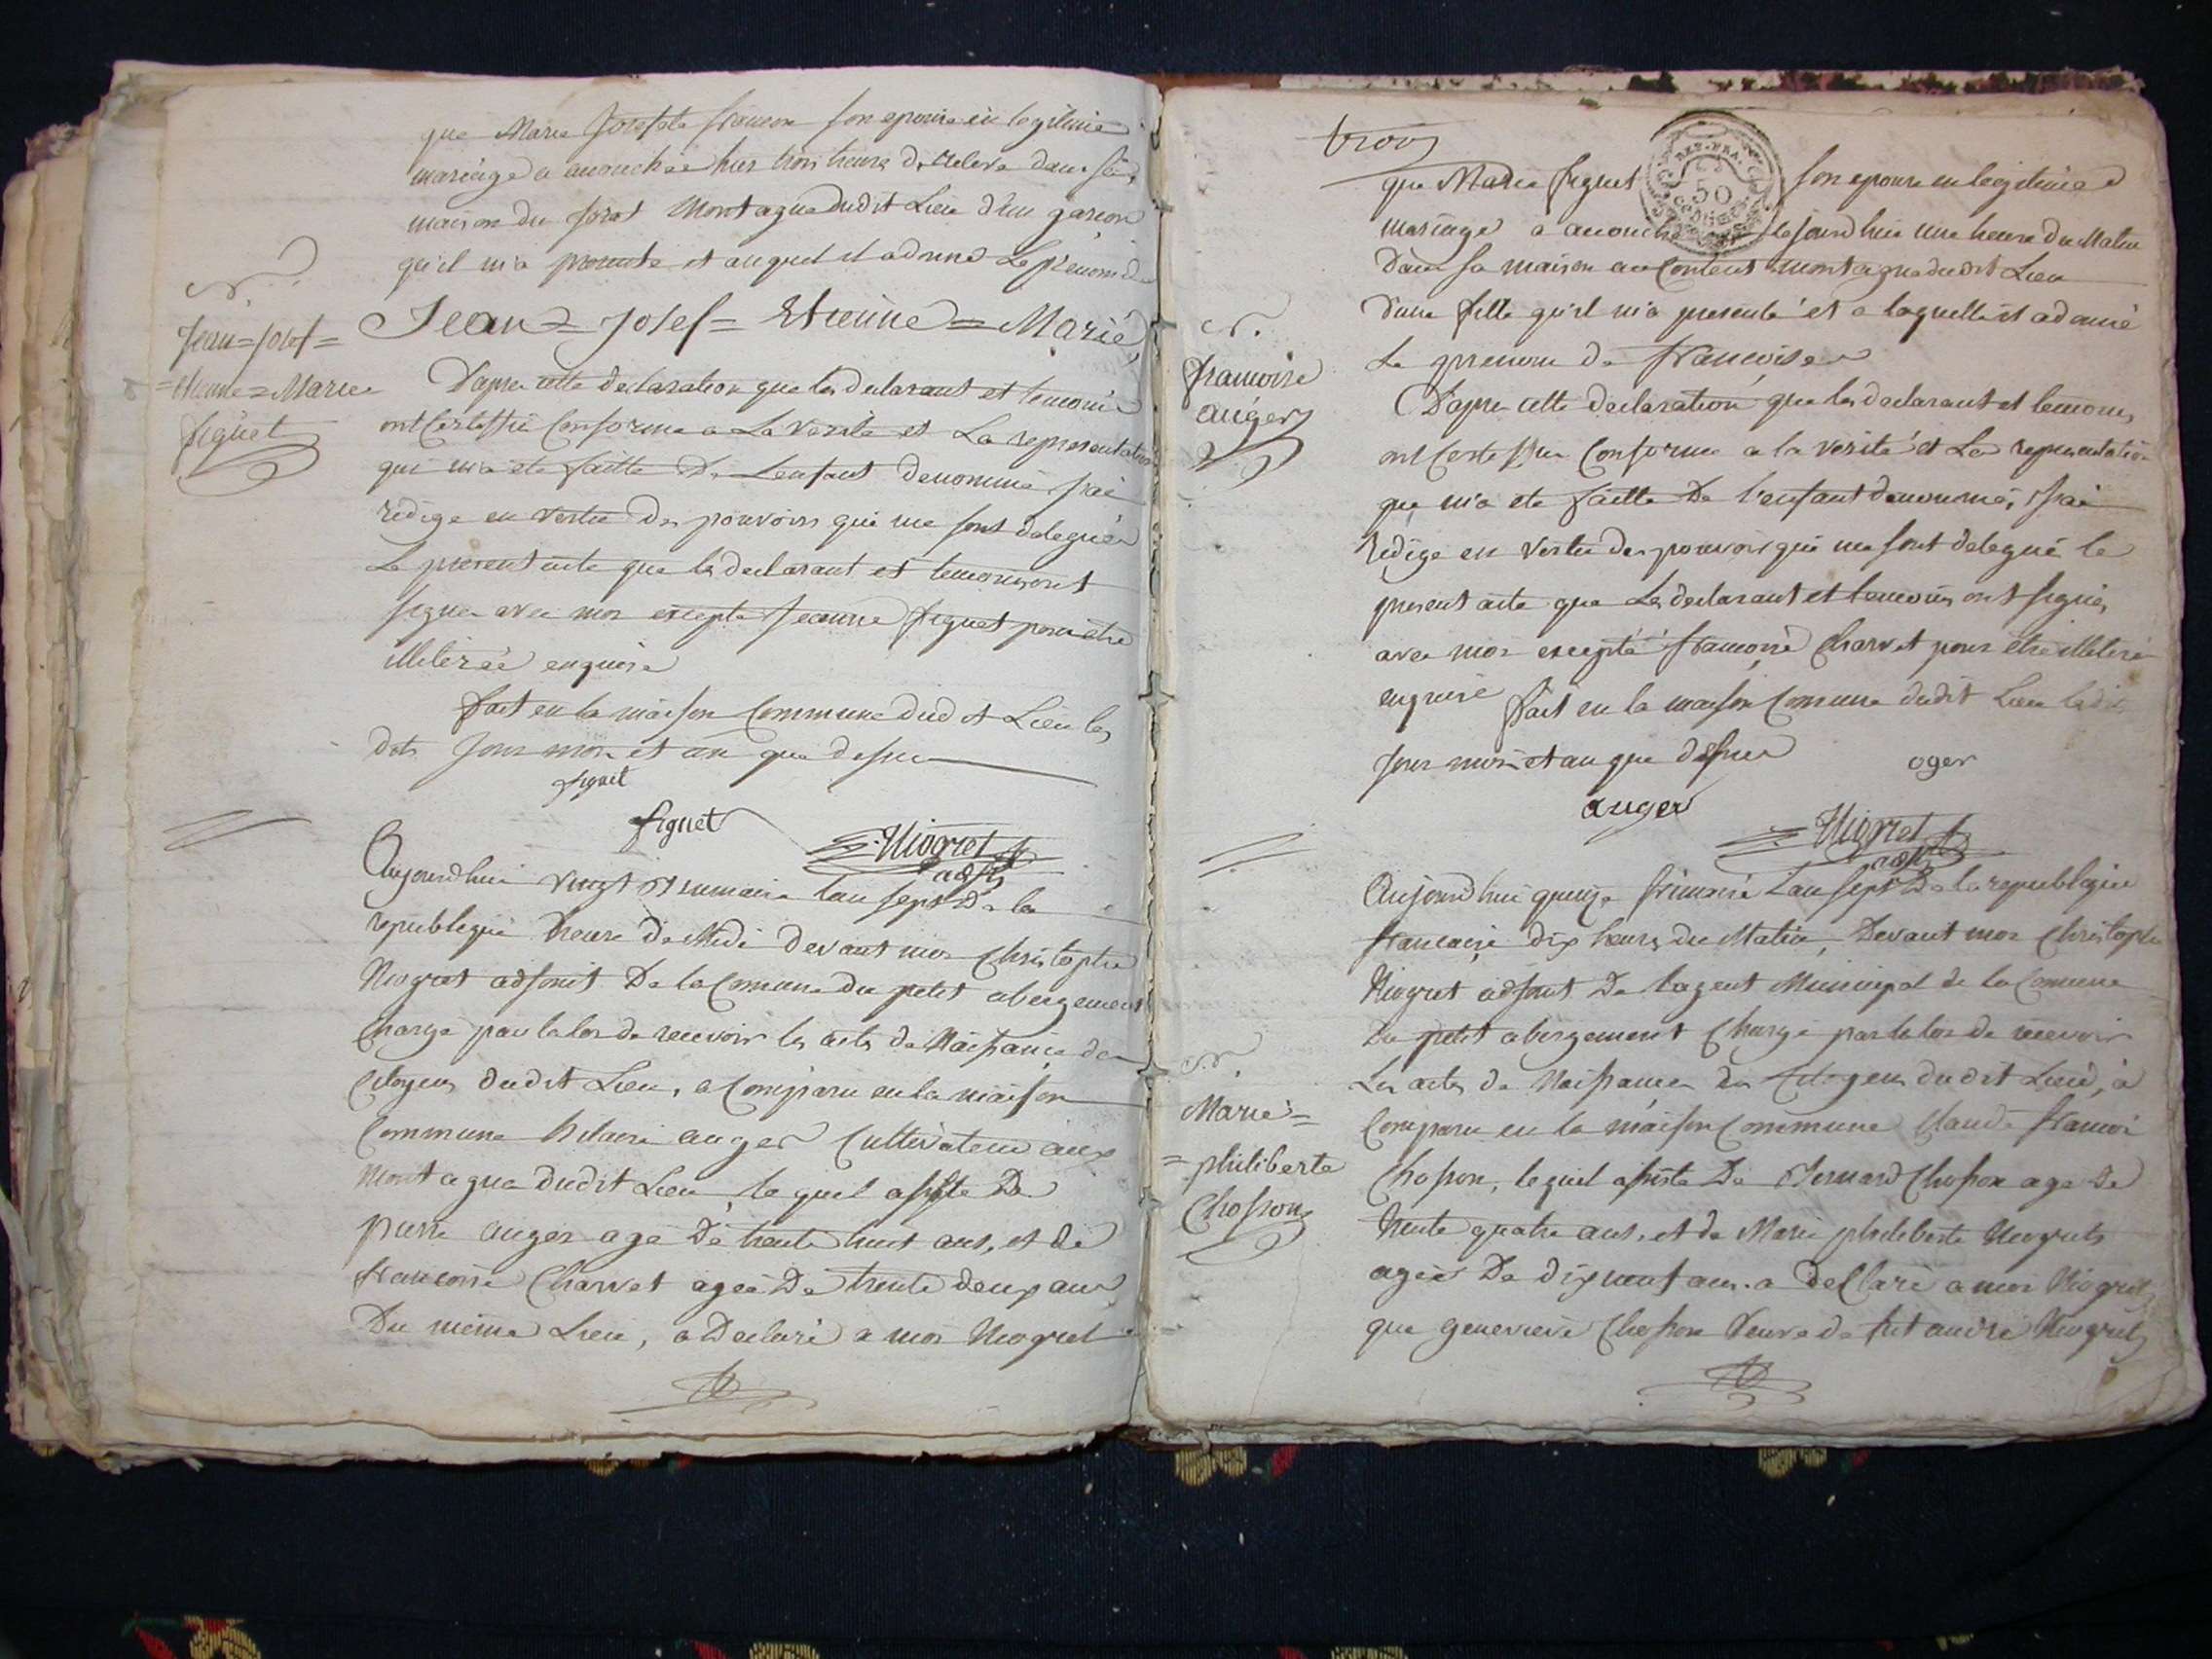 que Marie Josephte françon son epouse en legitime
mariage a accouchée hier trois heures de releve dans sa
maison du jorat Montagne dudit Lieu d'un garson
qu'il m'a presenté et auquel il a donné Le prenom de
N.
Jean = Josef = Etienne = Marie
Jean = Josef =
= Etienne = Marie
figuet
D'apres cette declaration que les declarant et temoins
ont Certiffié Conforme a La Verité et La representation
qui m'a ete faitte De Lenfant denommé j'ai
redigé en vertu des pouvoirs qui me sont delegués
Le present acte que les declarant et temoins ont
signés avec moi excepté Jeanne figuet pour être
illiterée enquise
fait en la maison Commune dudit Lieu les
dits jour mois et an que dessus
figuet
figuet
Niogret
adjt
Aujourdhui vingt brumaire l'an sept De la
republique heure de Midi devant moi Christophe
Niogret adjoint De la Comune du petit abergement
Chargé par la loi de recevoir les actes de Naissance des
Citoyens dudit Lieu, a Comparu en la maison
Commune hilaire auger Cultivateur aux
Montagne dudit Lieu, lequel assisté De
pierre auger agé de trente huit ans, et de
francoise Charvet agée De trente deux ans
Du même Lieu, a Declaré a moi Niogret
trois
REP. FRA.
50
que Marie figuet son epouse en legitime
mariage a accouché lejourdhui une heure du Matin
dans sa maison au Content montagne dudit Lieu
d'une fille qu'il m'a presenté et a laquelle il a donné
Le prenom de francoise
N.
francoise
auger
D'apres cette declaration que les declarant et temoins
ont Certiffié Conforme a la verité et La representation
que m'a ete faitte De l'enfant denommé, j'ai
redigé en vertu des pouvoir qui me sont delegué le
present acte que Les declarant et temoins ont signés
avec moi excepté francoise Charvet pour être illiteré
enquise fait en la maison Comune dudit Lieu lesdits
jour mois et an que dessus
oger
auger
Niogret
adjt
Aujourdhui quinze frimaire L'an sept De la republique
francaise dix heures du Matin, Devant moi Christophe
Niogret adjoint De l'agent Municipal de la Comune
Du petit abergement Chargé par la loi de recevoir
Les actes de Naissances des Citoyens dudit Lieu, a
Comparu en la maison Commune Claude francoi
Chosson, lequel assisté De Bernard Chosson agé De
trente quatre ans, et de Marie philiberte Niogret
agée De dix neuf ans. a declaré a moi Niogret
que genevieve Chosson Veuve de fut andré Niogret
N.
Marie =
= philiberte
Chosson